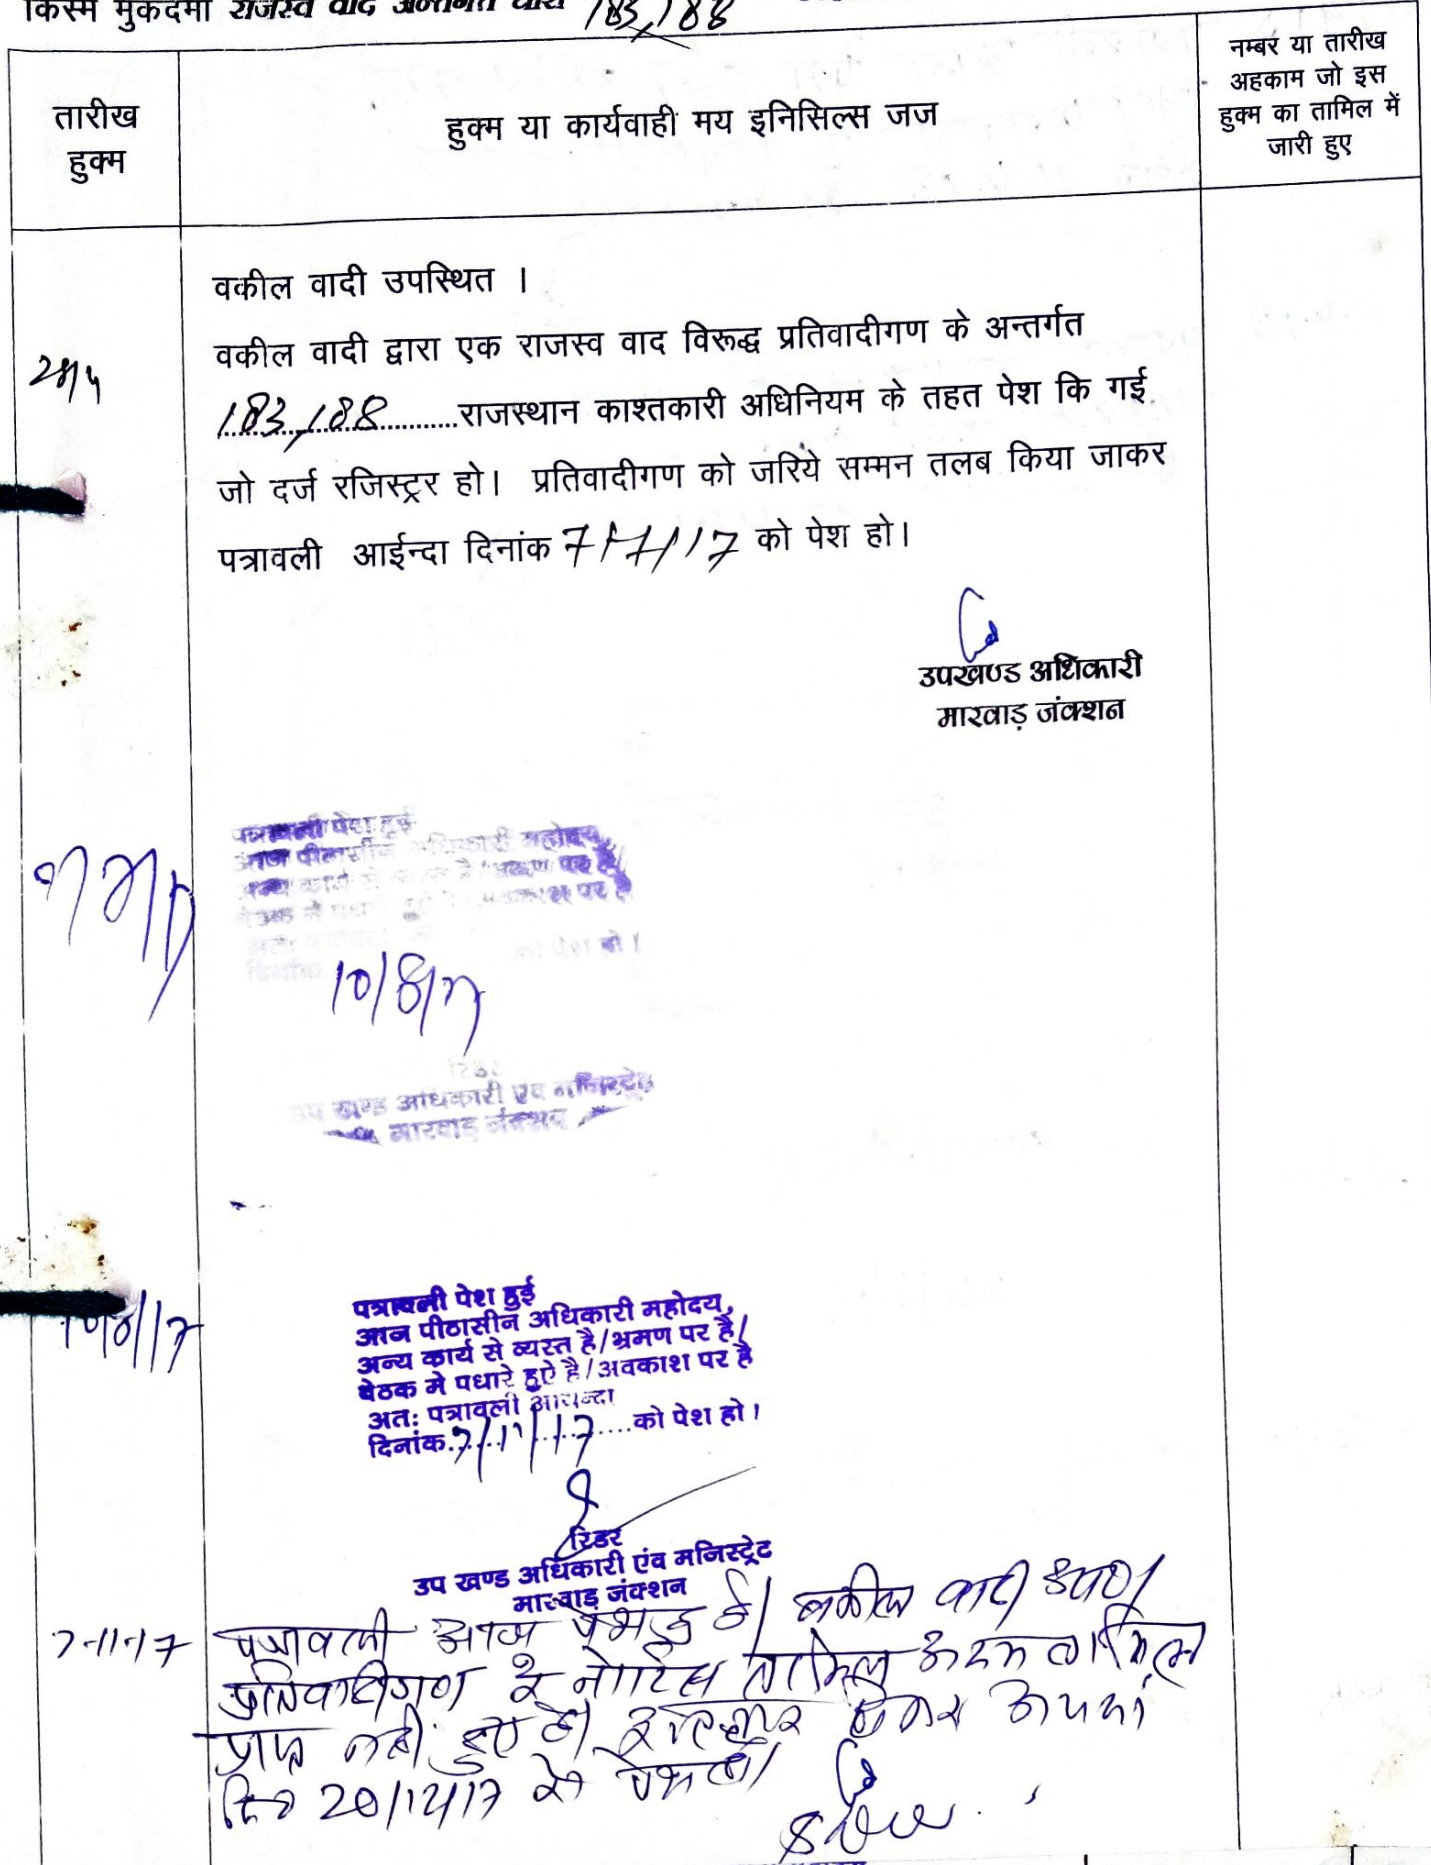 किस्म मुकदमा राजस्व वाद अन्तर्गत धारा 183,188
तारीख
हुक्म
हुक्म या कार्यवाही मय इनिसिल्स जज
नम्बर या तारीख
अहकाम जो इस
हुक्म का तामिल में
जारी हुए
वकील वादी उपस्थित ।
वकील वादी द्वारा एक राजस्व वाद विरूद्ध प्रतिवादीगण के अन्तर्गत
183,188 राजस्थान काश्तकारी अधिनियम के तहत पेश कि गई
जो दर्ज रजिस्ट्रर हो। प्रतिवादीगण को जरिये सम्मन तलब किया जाकर
पत्रावली आईन्दा दिनांक 7/7/17 को पेश हो।
उपखण्ड अधिकारी
मारवाड़ जंक्शन
पत्रावली पेश हुई
आज पीठासीन अधिकारी महोदय,
अन्य कार्य से व्यस्त है/भ्रमण पर है/
बैठक मे पधारे हुऐ है/अवकाश पर है
को पेश हो।
दिनांक
10/8/17
उप खण्ड अधिकारी एंव मजिस्ट्रेट
मारवाड़ जंक्शन
10/8/17
पत्रावली पेश हुई
आज पीठासीन अधिकारी महोदय,
अन्य कार्य से व्यस्त है/भ्रमण पर है/
बेठक मे पधारे हुऐ है/अवकाश पर है
अतः पत्रावली आयन्दा
दिनांक 7/11/17 को पेश हो।
रिडर
उप खण्ड अधिकारी एंव मजिस्ट्रेट
मारवाड़ जंक्शन
7-11-17 पत्रावली आज पेश हुई है। वकील वादी उप०।
प्रतिवादीगण के नोटिस तामिल अदम तामिल
प्राप्त नही हुए है। इन्तजार
20/12/17 को पेश हो।